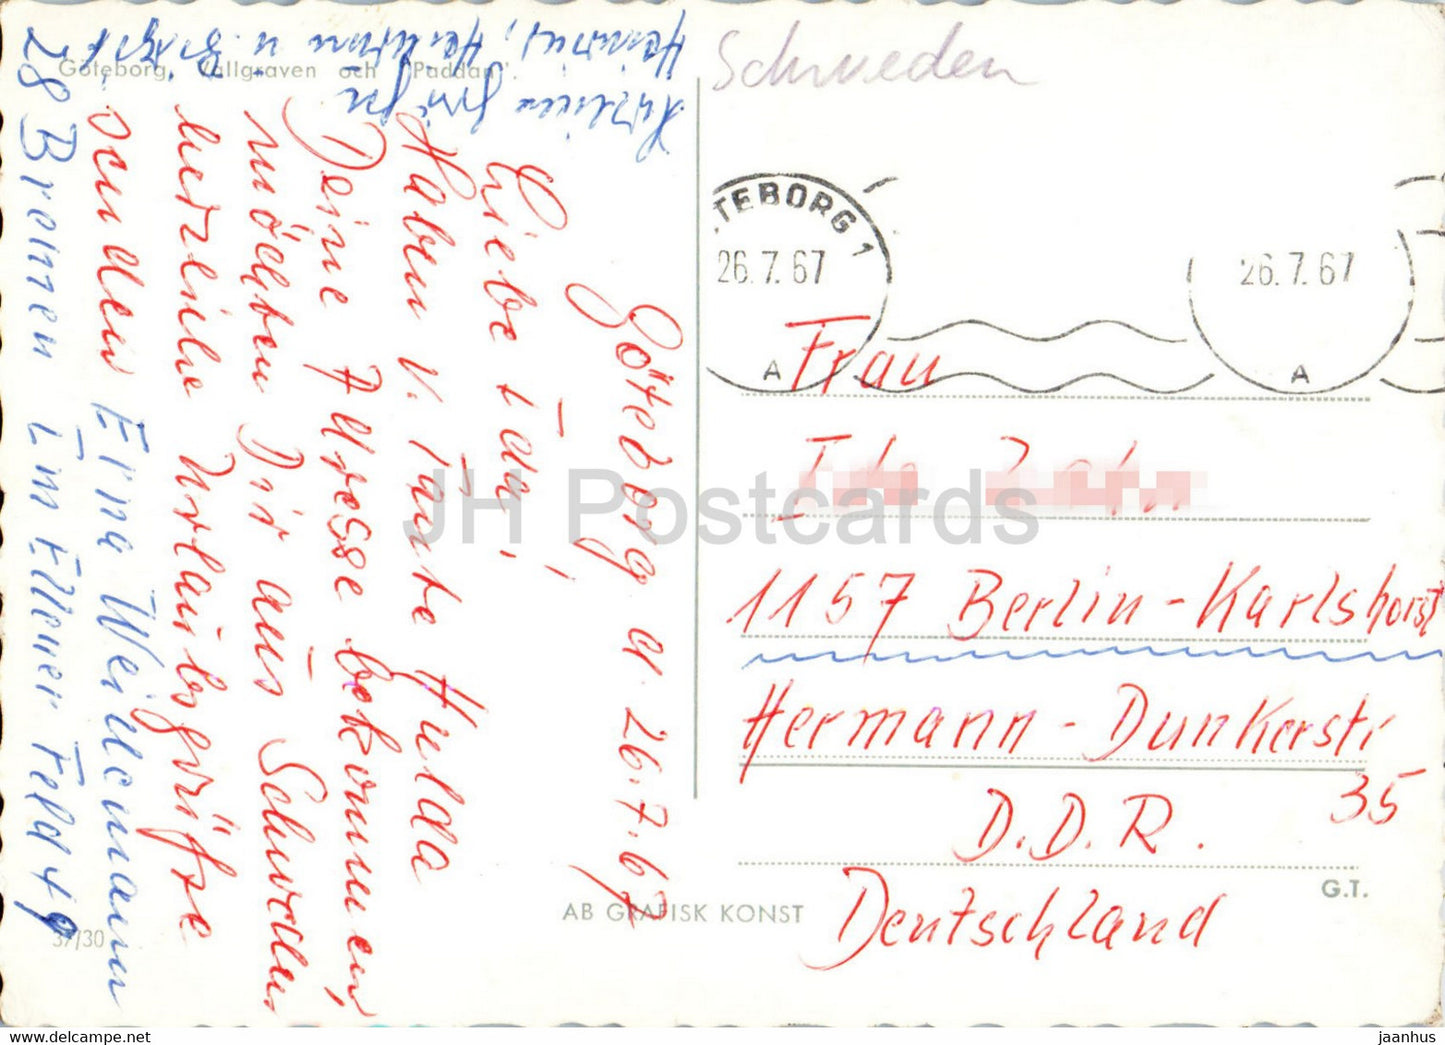 Schweden
Göteborg, Vallgraven och "Paddan".
Göteborg d. 26.7.67
Liebe
Haben v. Tante Hulda
Deine Adresse bekommen,
möchten Dir aus Schweden
herzliche Urlaubsgrüße
senden Erna Weidemann
28 Bremen Im Ellener Feld 49
Herzlichen Grüße
Heinrich, u.
TEBORG 1
26.7.67
A
26.7.67
A
Frau
1157 Berlin-Karlshorst
Hermann-Dunkerstr
35
D.D.R.
Deutschland
G.T.
AB GRAFISK KONST
37/30
JH Postcards
hipstamp.com
jaanhus